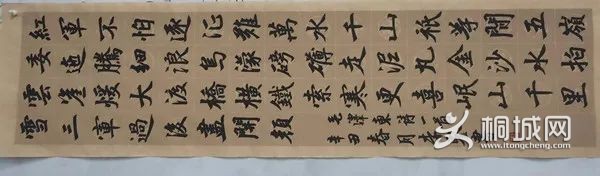 紅軍不怕遠征難萬水千山祇等閒五嶺
逶迤騰細浪烏濛磅礴走泥丸金沙水拍
雲崖煖大渡橋橫鐵索寒更喜岷山千里
雪三軍過後盡開顏
毛澤東詩一首
春月
桐城网
www.itongcheng.com